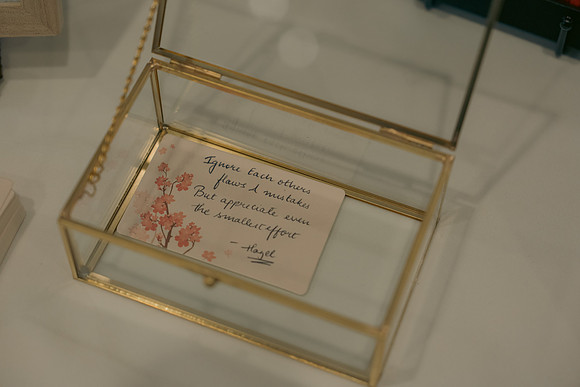 Ignore Each others
flaws & mistakes
But appreciate even
the smallest effort
- Hazel